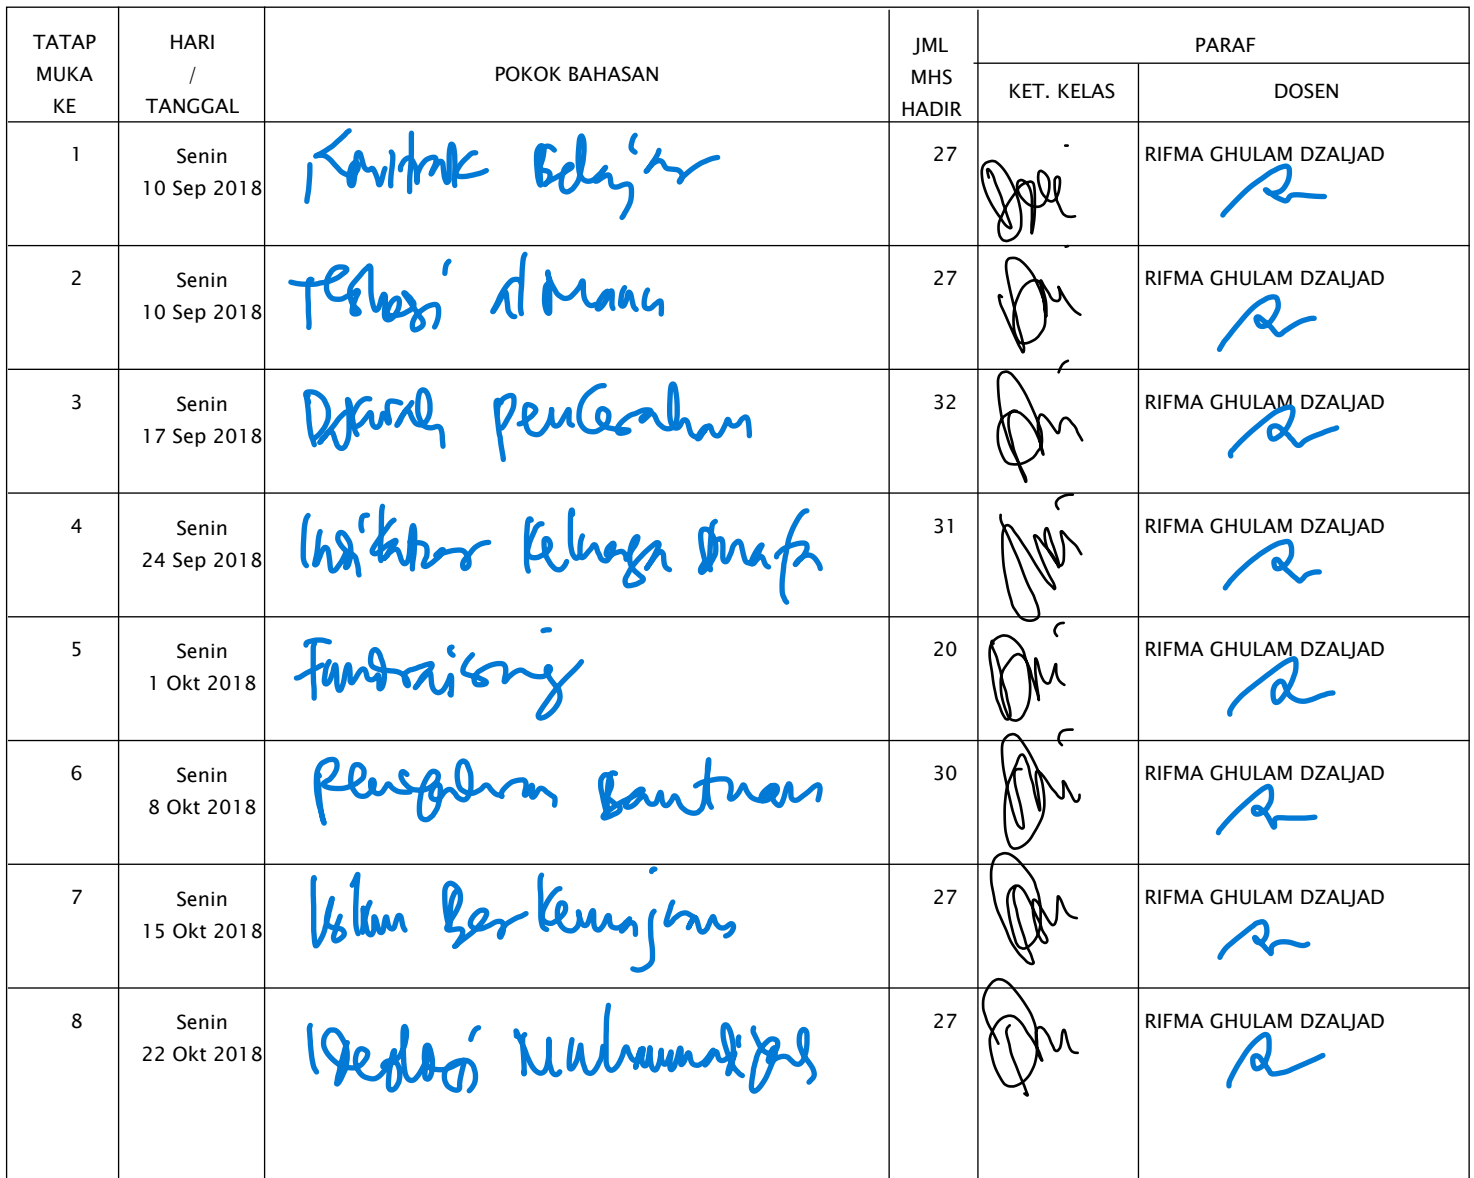 TATAP MUKA KE HARI / TANGGAL POKOK BAHASAN JML MHS HADIR PARAF
KET. KELAS DOSEN
1 Senin 10 Sep 2018 Kontrak Belajar 27 RIFMA GHULAM DZALJAD
2 Senin 10 Sep 2018 Teologi Al Maun 27 RIFMA GHULAM DZALJAD
3 Senin 17 Sep 2018 Dakwah pencerahan 32 RIFMA GHULAM DZALJAD
4 Senin 24 Sep 2018 Indikator Keluarga Duafa 31 RIFMA GHULAM DZALJAD
5 Senin 1 Okt 2018 Fundraising 20 RIFMA GHULAM DZALJAD
6 Senin 8 Okt 2018 Bantuan 30 RIFMA GHULAM DZALJAD
7 Senin 15 Okt 2018 Islam Berkemajuan 27 RIFMA GHULAM DZALJAD
8 Senin 22 Okt 2018 Ideologi Muhammadiyah 27 RIFMA GHULAM DZALJAD